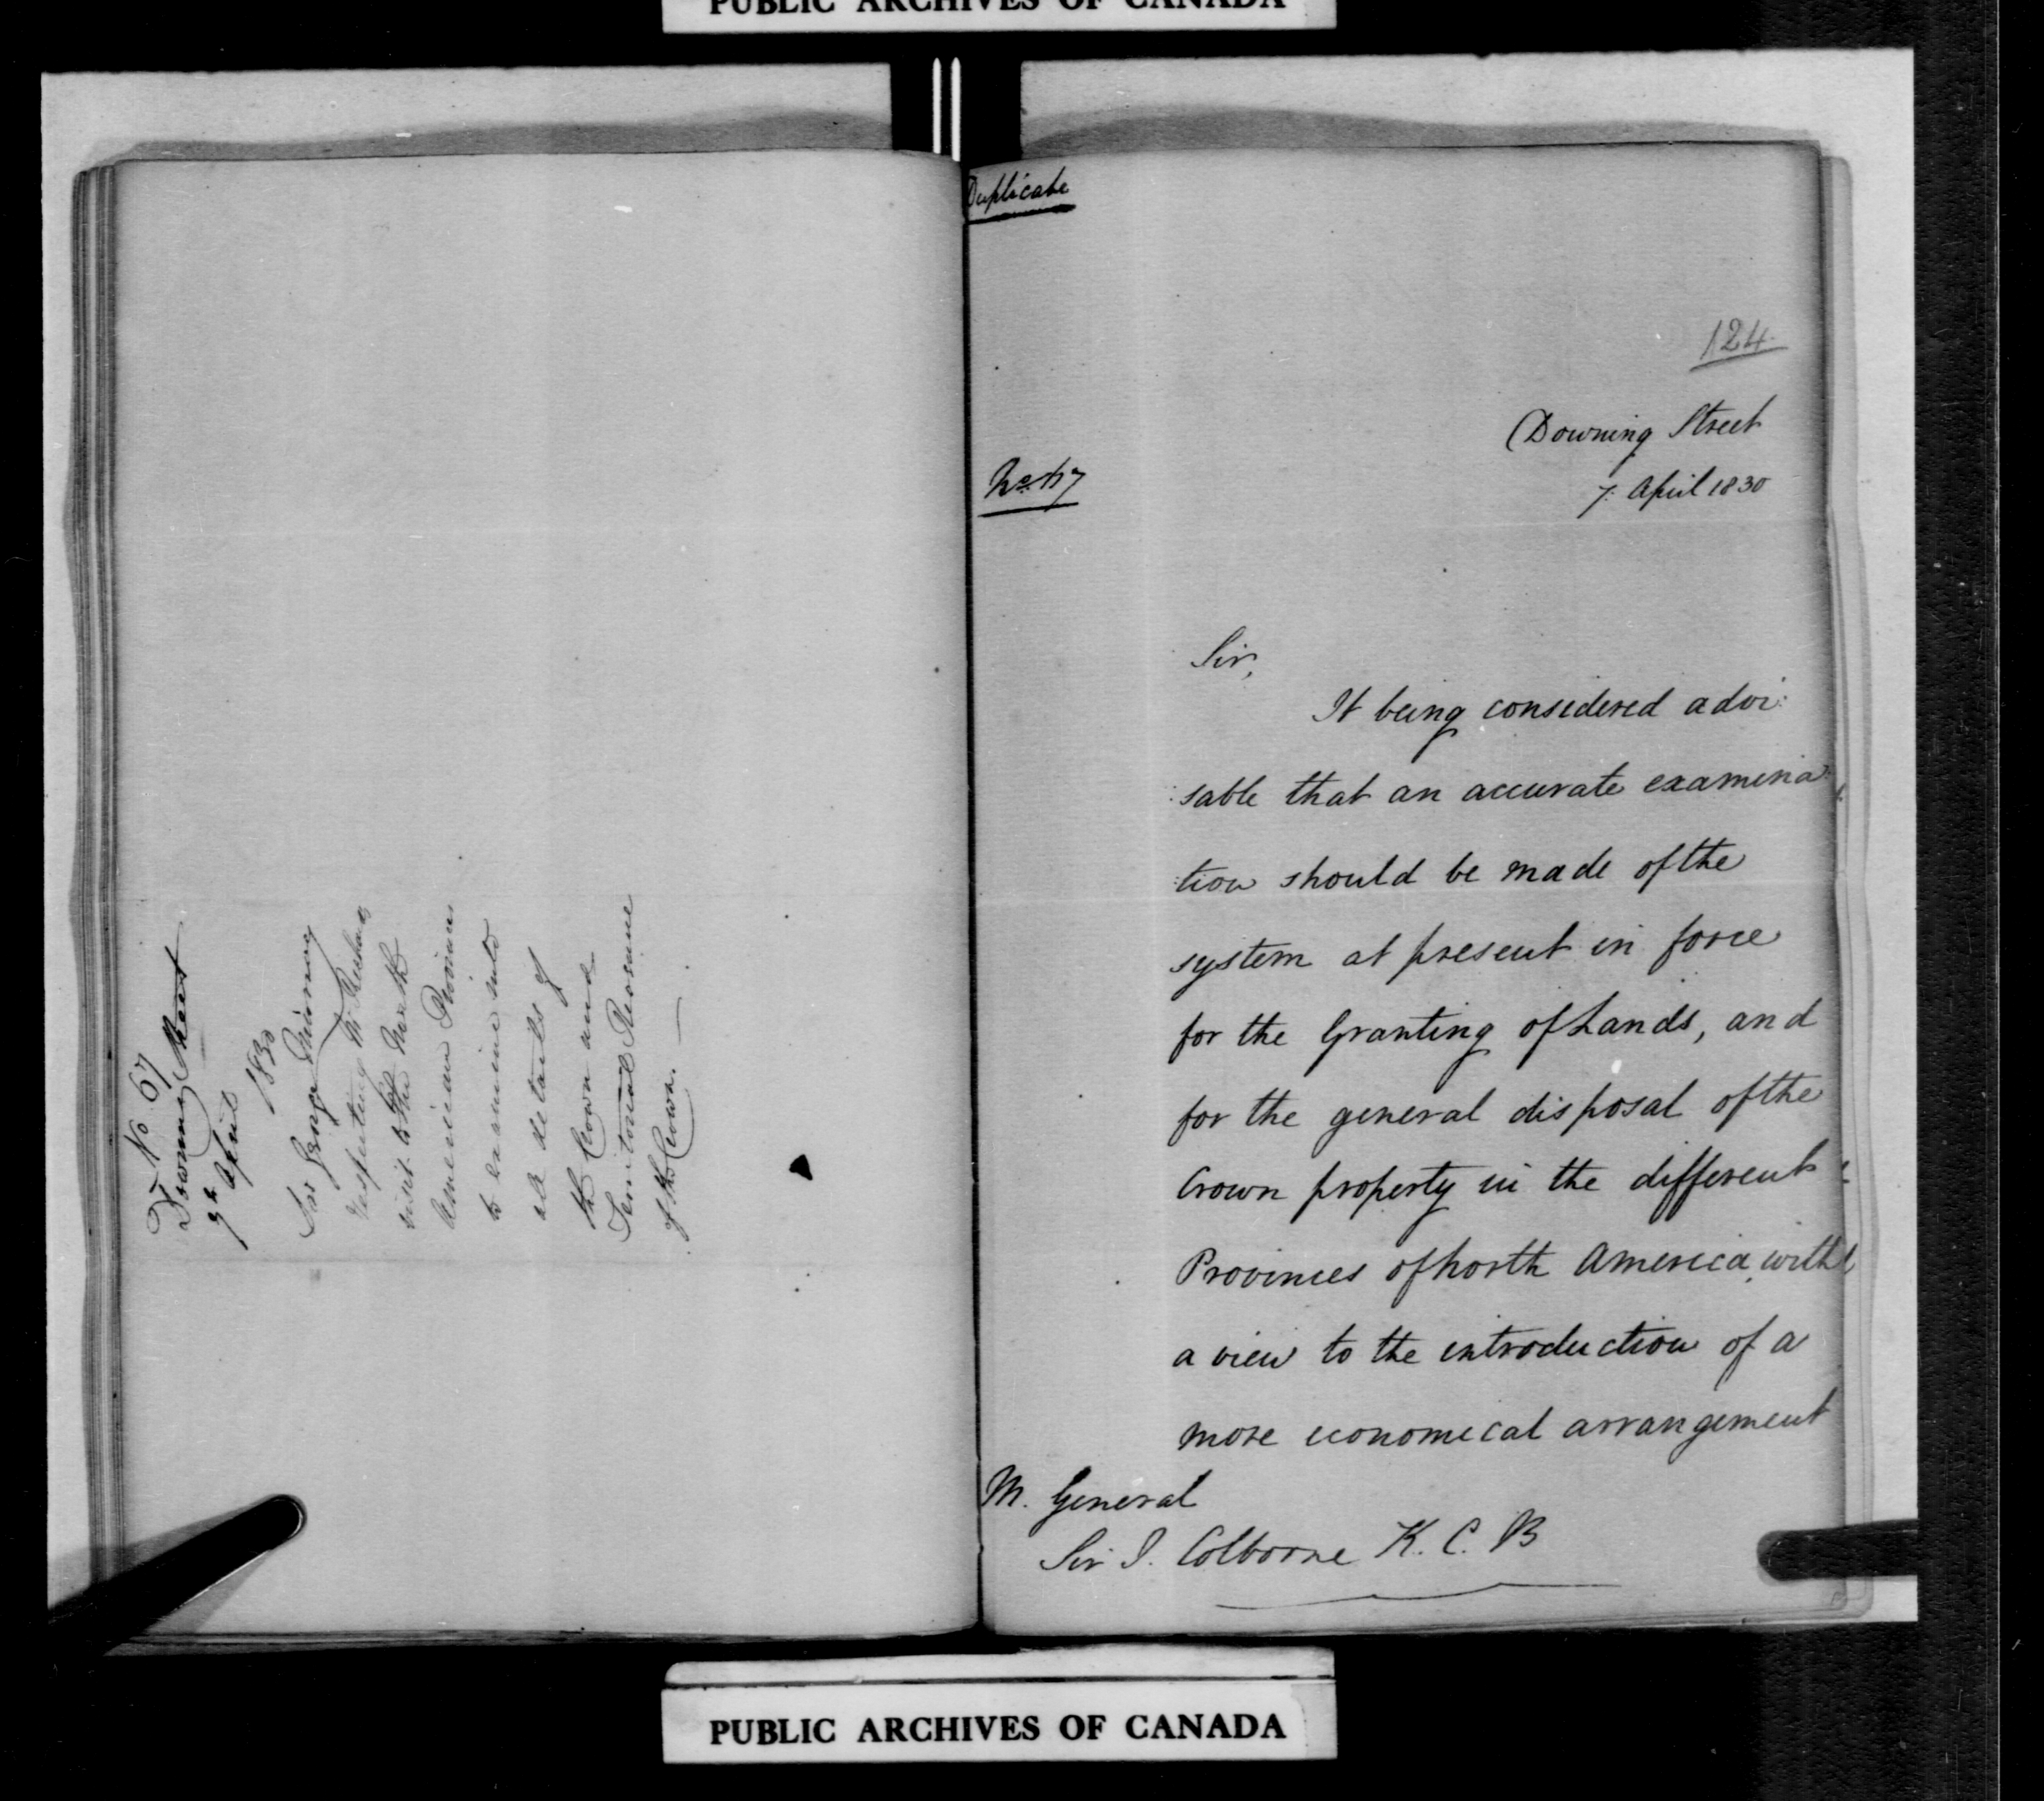 PUBLIC ARCHIVES OF CANADA
No 67
Downing Street
7th April
1830
Sir George Murray
respecting Mr Richards
visit to the North
American Provinces
to examine into
all details of
the Crown and
Territorial Revenue
of the Crown. —
Duplicate
124
Downing Street
No. 67
7. April 1830
Sir,
It being considered advi:
:sable that an accurate examina:
:tion should be made of the
system at present in force
for the Granting of Lands, and
for the general disposal of the
Crown property in the different
Provinces of North America, with
a view to the introduction of a
more economical arrangement
M. General
Sir J. Colborne K. C. B
PUBLIC ARCHIVES OF CANADA